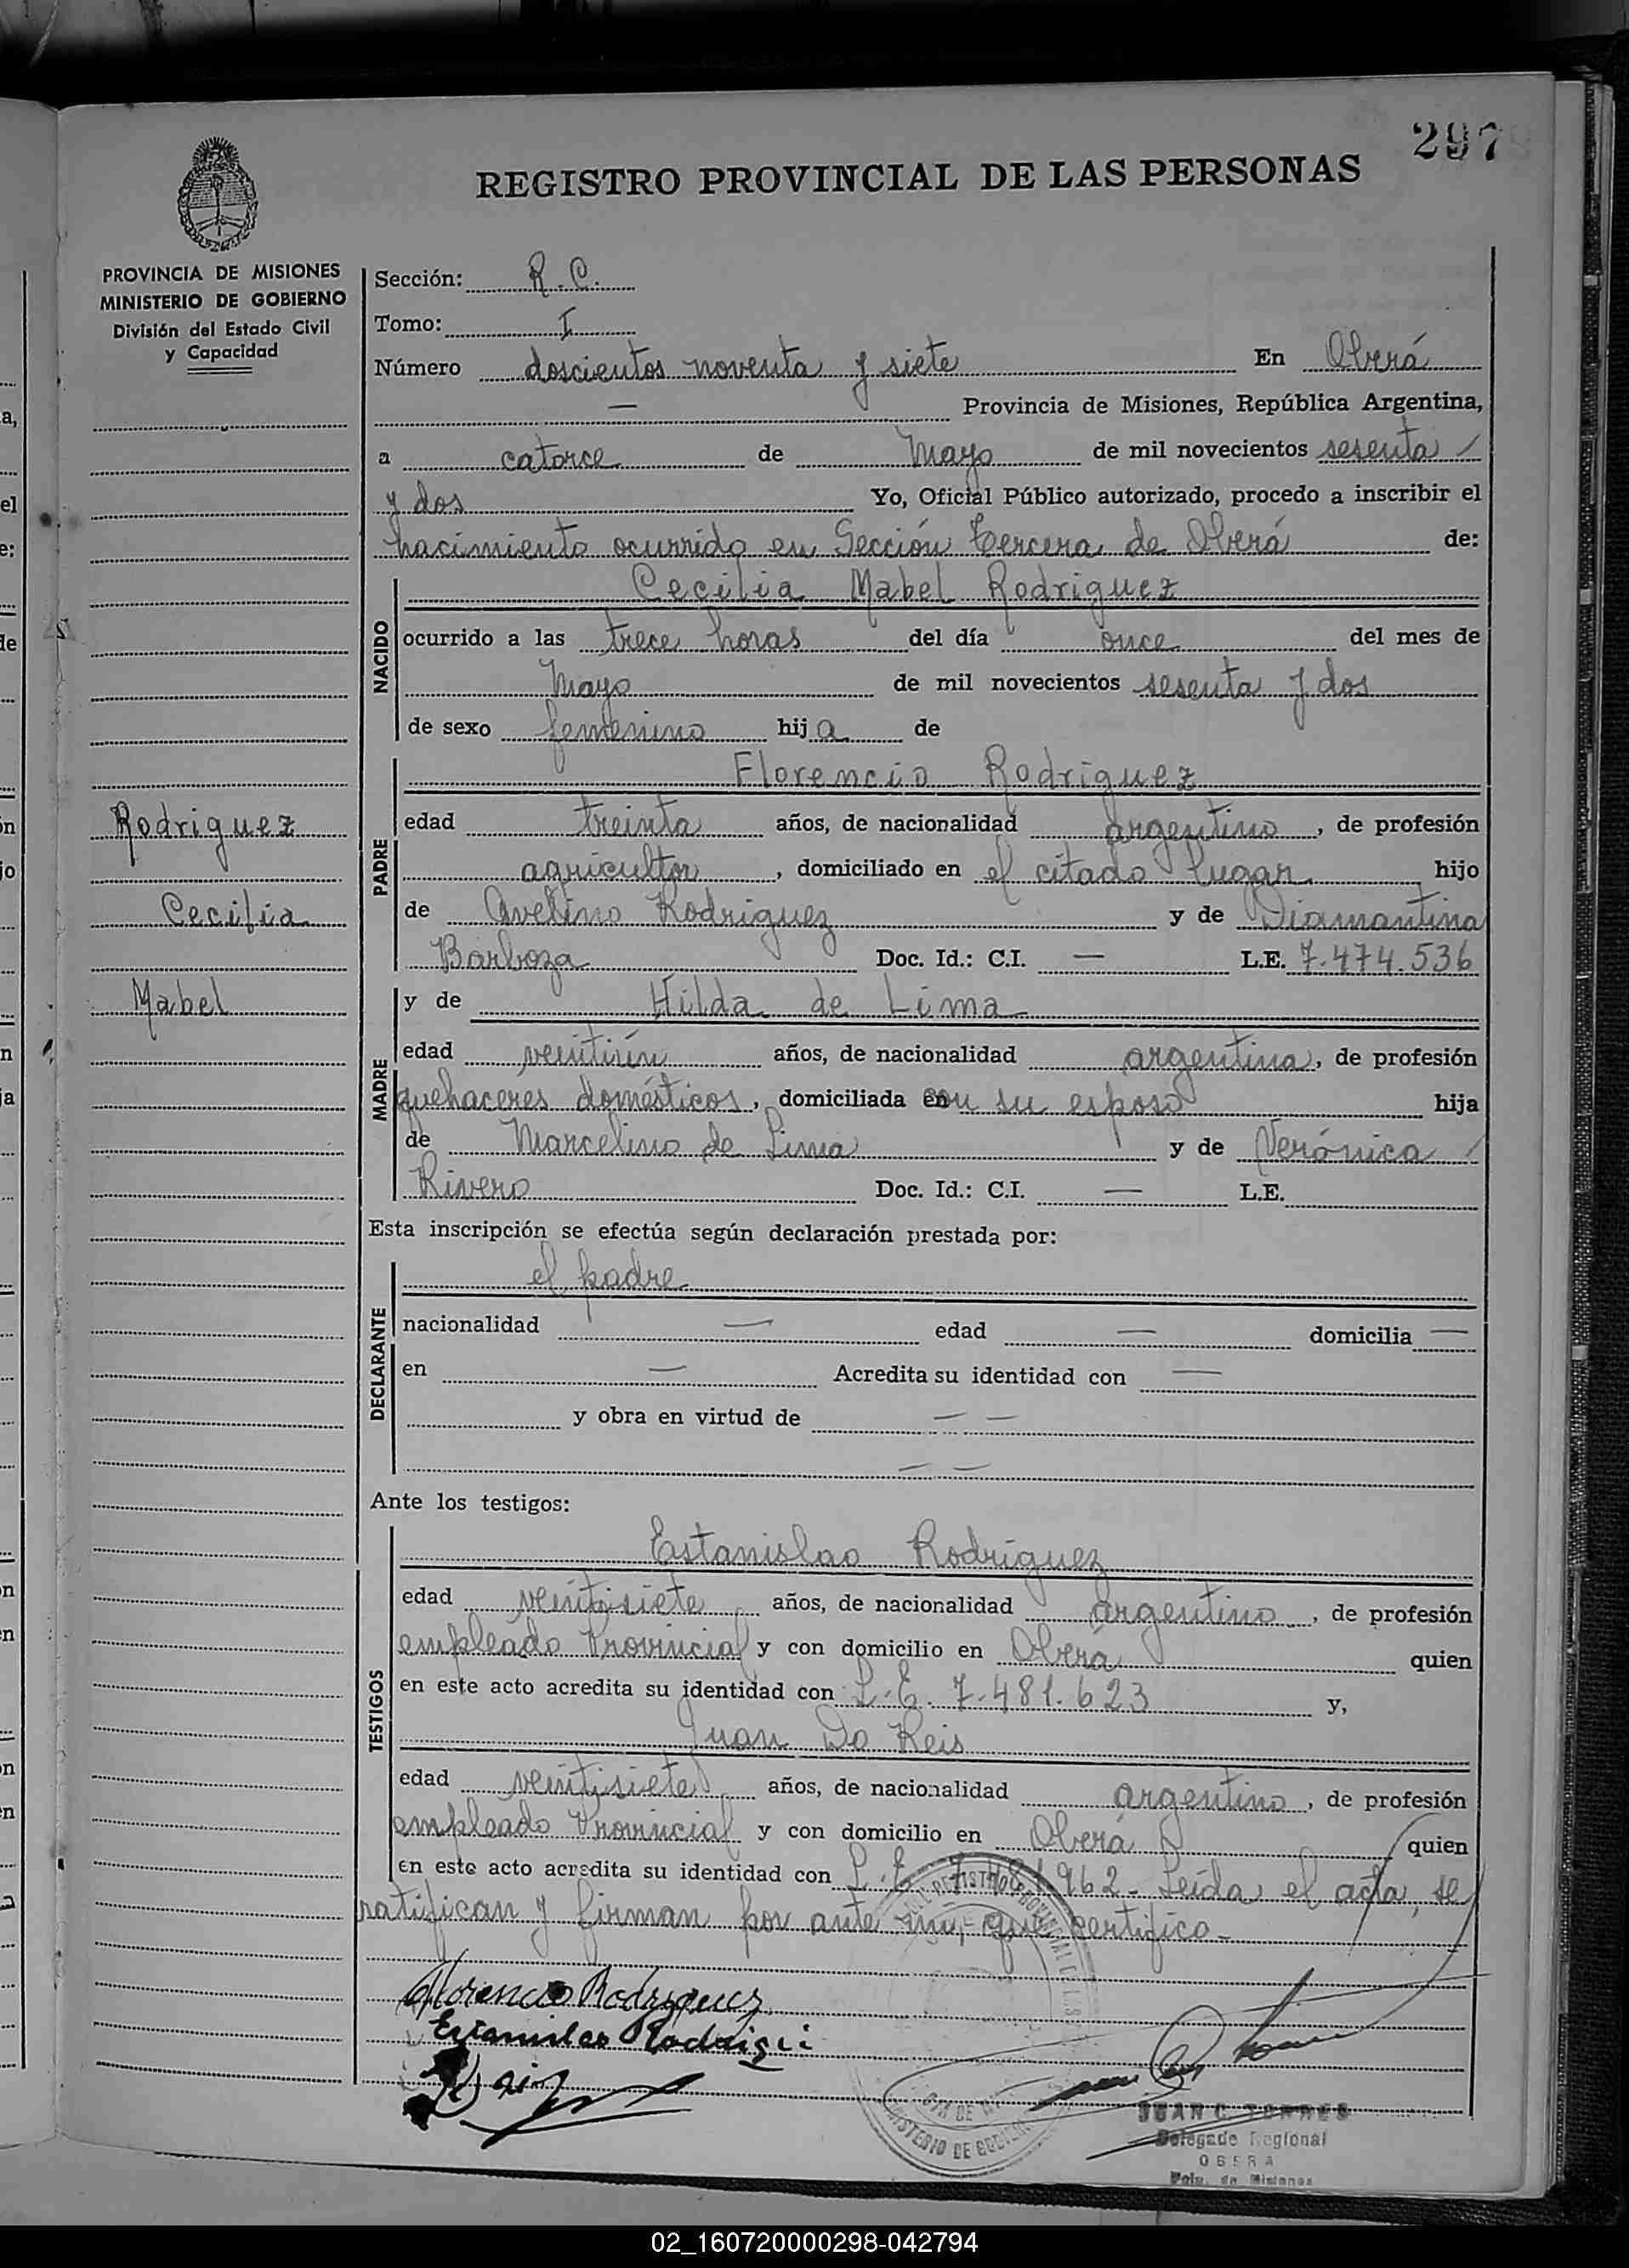 297
REGISTRO PROVINCIAL DE LAS PERSONAS
PROVINCIA DE MISIONES
MINISTERIO DE GOBIERNO
División del Estado Civil
y Capacidad
Rodriguez
Cecilia
Mabel
Sección: R. C.
Tomo: I
Número doscientos noventa y siete En Oberá
— Provincia de Misiones, República Argentina,
a catorce de Mayo de mil novecientos sesenta
y dos Yo, Oficial Público autorizado, procedo a inscribir el
nacimiento ocurrido en Sección Tercera de Oberá de:
NACIDO
Cecilia Mabel Rodriguez
ocurrido a las trece horas del día once del mes de
Mayo de mil novecientos sesenta y dos
de sexo femenino hija de
PADRE
Florencio Rodriguez
edad treinta años, de nacionalidad argentino, de profesión
agricultor, domiciliado en el citado lugar hijo
de Avelino Rodriguez y de Diamantina
Barboza Doc. Id.: C.I. — L.E. 7.474.536
MADRE
y de Hilda de Lima
edad veintiún años, de nacionalidad argentina, de profesión
quehaceres domésticos, domiciliada con su esposo hija
de Marcelino de Lima y de Verónica
Rivero Doc. Id.: C.I. — L.E.
Esta inscripción se efectúa según declaración prestada por:
DECLARANTE
el padre
nacionalidad — edad — domicilia —
en — Acredita su identidad con —
y obra en virtud de — —
— —
Ante los testigos:
TESTIGOS
Estanislao Rodriguez
edad veintisiete años, de nacionalidad argentino, de profesión
empleado Provincial y con domicilio en Oberá quien
en este acto acredita su identidad con L.E. 7.481.623 y,
Juan Do Reis
edad veintisiete años, de nacionalidad argentino, de profesión
empleado Provincial y con domicilio en Oberá quien
en este acto acredita su identidad con L.E. 962 - Leída el acta, se
ratifican y firman por ante mí, que certifico -
Florencio Rodriguez
Estanislao
JUAN C. TORRES
Delegado Regional
OBERA
Pcia. de Misiones
MINISTERIO DE GOBIERNO
02_160720000298-042794